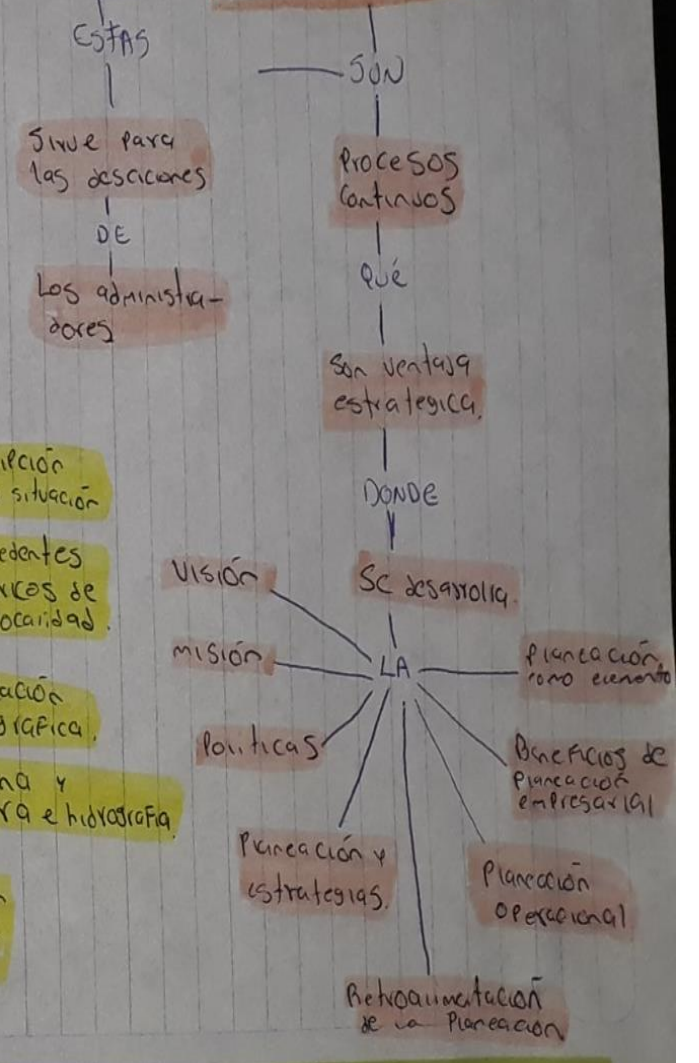 ESTAS
SON
Sirve para
las desciciones
DE
Los administra-
dores
Procesos
Continuos
Qué
Son ventaja
estrategica.
DONDE
Se desarrolla.
LA
Visión
misión
Politicas
Planeación y
estrategias.
Retroalimentación
de la Planeación
Planeación
Operacional
Beneficios de
Planeación
empresarial
Planeación
como elemento
ipción
situación
edentes
icos de
ocalidad.
ación
grafica.
na y
ra e hidrografia.